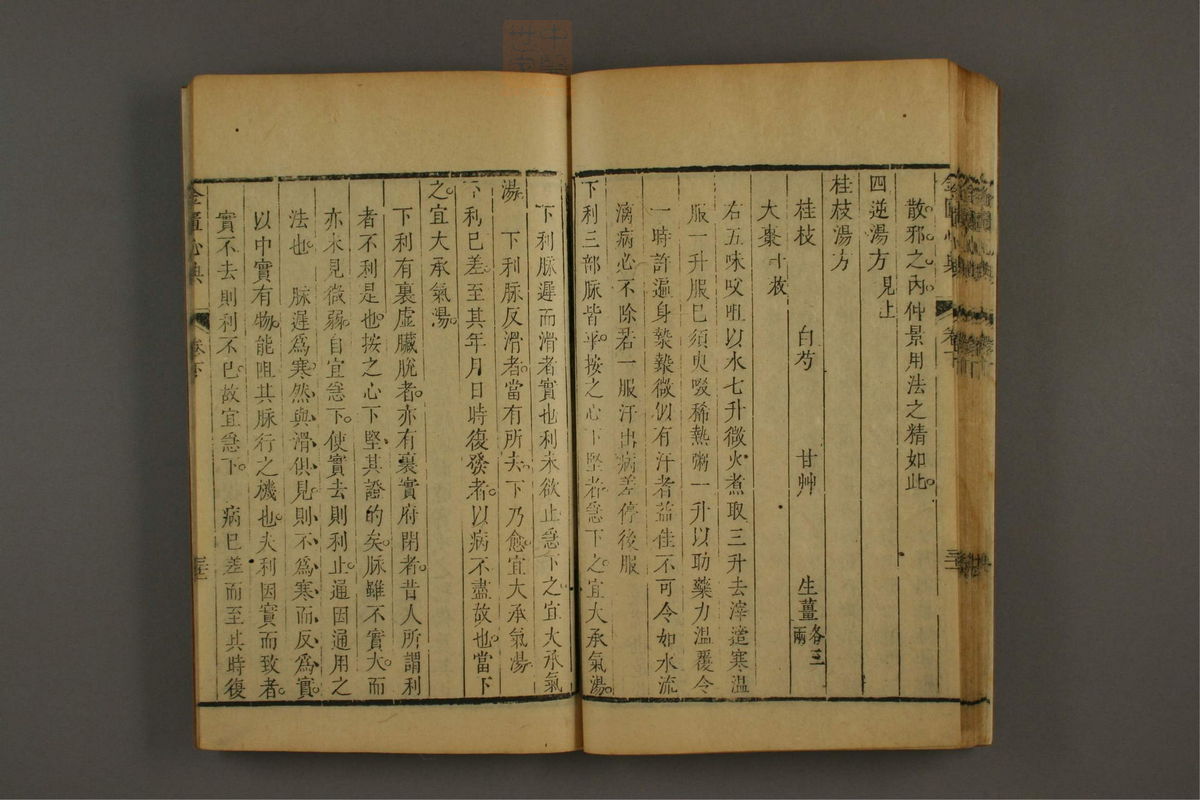 散邪之內仲景用法之精如此
四逆湯方見上
桂枝湯方
桂枝 白芍 甘艸 生薑各三兩
大棗十枚
右五味㕮咀以水七升微火煮取三升去滓適寒温
服一升服巳須臾啜稀熱粥一升以助藥力温覆令
一時許遍身漐漐微似有汗者益佳不可令如水流
漓病必不除若一服汗出病差停後服
下利三部脉皆平按之心下堅者急下之宜大承氣湯
下利脉遲而滑者實也利未欲止急下之宜大承氣
湯 下利脉反滑者當有所去下乃愈宜大承氣湯
下利巳差至其年月日時復發者以病不盡故也當下
之宜大承氣湯
下利有裏虛臟脫者亦有裏實府閉者昔人所謂利
者不利是也按之心下堅其證的矣脉雖不實大而
亦未見微弱自宜急下使實去則利止通因通用之
法也 脉遲爲寒然與滑俱見則不爲寒而反爲實
以中實有物能阻其脉行之機也夫利因實而致者
實不去則利不巳故宜急下 病巳差而至其時復
金匱心典 卷下